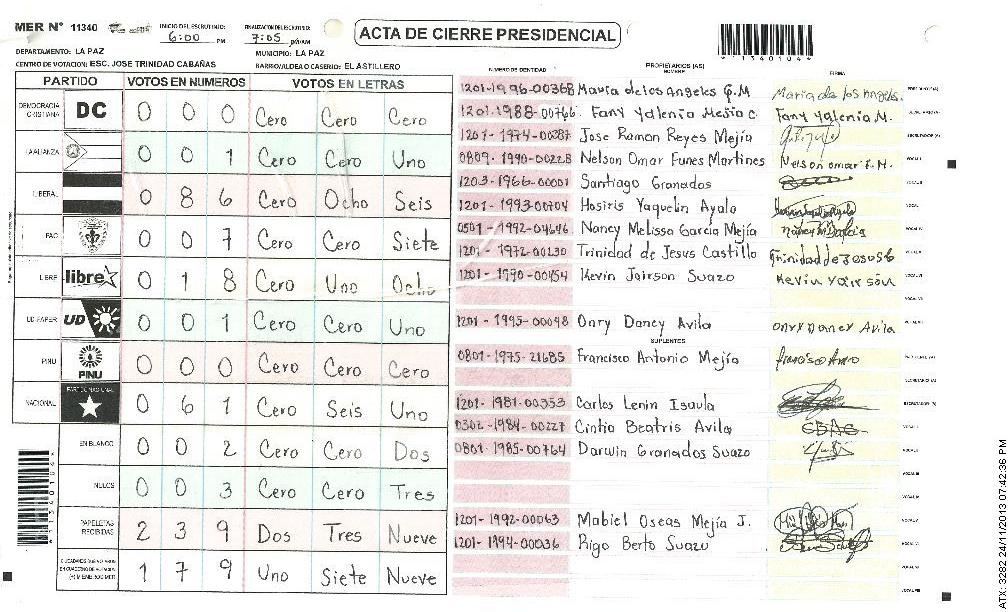 MER N° 11340 INICIO DEL ESCRUTINIO: 6:00 PM FINALIZACION DEL ESCRUTINIO: 7:05 PM ACTA DE CIERRE PRESIDENCIAL
*11340104*
DEPARTAMENTO: LA PAZ MUNICIPIO: LA PAZ
CENTRO DE VOTACION: ESC. JOSE TRINIDAD CABAÑAS BARRIO/ALDEA O CASERIO: EL ASTILLERO
PARTIDO VOTOS EN NUMEROS VOTOS EN LETRAS
DEMOCRACIA CRISTIANA DC 0 0 0 Cero Cero Cero
LA ALIANZA 0 0 1 Cero Cero Uno
LIBERAL 0 8 6 Cero Ocho Seis
PAC 0 0 7 Cero Cero Siete
LIBRE libre 0 1 8 Cero Uno Ocho
UD-FAPER UD 0 0 1 Cero Cero Uno
PINU PINU 0 0 0 Cero Cero Cero
NACIONAL PARTIDO NACIONAL 0 6 1 Cero Seis Uno
EN BLANCO 0 0 2 Cero Cero Dos
NULOS 0 0 3 Cero Cero Tres
PAPELETAS RECIBIDAS 2 3 9 Dos Tres Nueve
1 7 9 Uno Siete Nueve
NUMERO DE IDENTIDAD PROPIETARIOS (AS) NOMBRE FIRMA
1201-1996-00368 Maria de los Angeles G.M Maria de los Angeles.
1201-1988-00766 Fany Yalenia Mejia C. Fany Yalenia M.
1201-1974-00287 Jose Ramon Reyes Mejía
0809-1990-00228 Nelson Omar Funes Martines Nelson omar F. M.
1203-1966-00001 Santiago Granados
1201-1993-00704 Hosiris Yaquelin Ayala
0501-1992-04646 Nancy Melissa Garcia Mejía
1201-1972-00230 Trinidad de Jesus Castillo Trinidad de Jesus
1201-1990-00454 Kevin Jairson Suazo Kevin Yairson
1201-1995-00098 Onry Daney Avila Onry Daney Avila
SUPLENTES
0801-1975-21685 Francisco Antonio Mejía
1201-1981-00353 Carlos Lenin Isaula
0302-1984-00227 Cintia Beatris Avila
0801-1985-00764 Darwin Granados Suazo
1201-1992-00063 Mabiel Oseas Mejía J.
1201-1994-00036 Rigo Berto Suazo
ATX: 3282 24/11/2013 07:42:36 PM